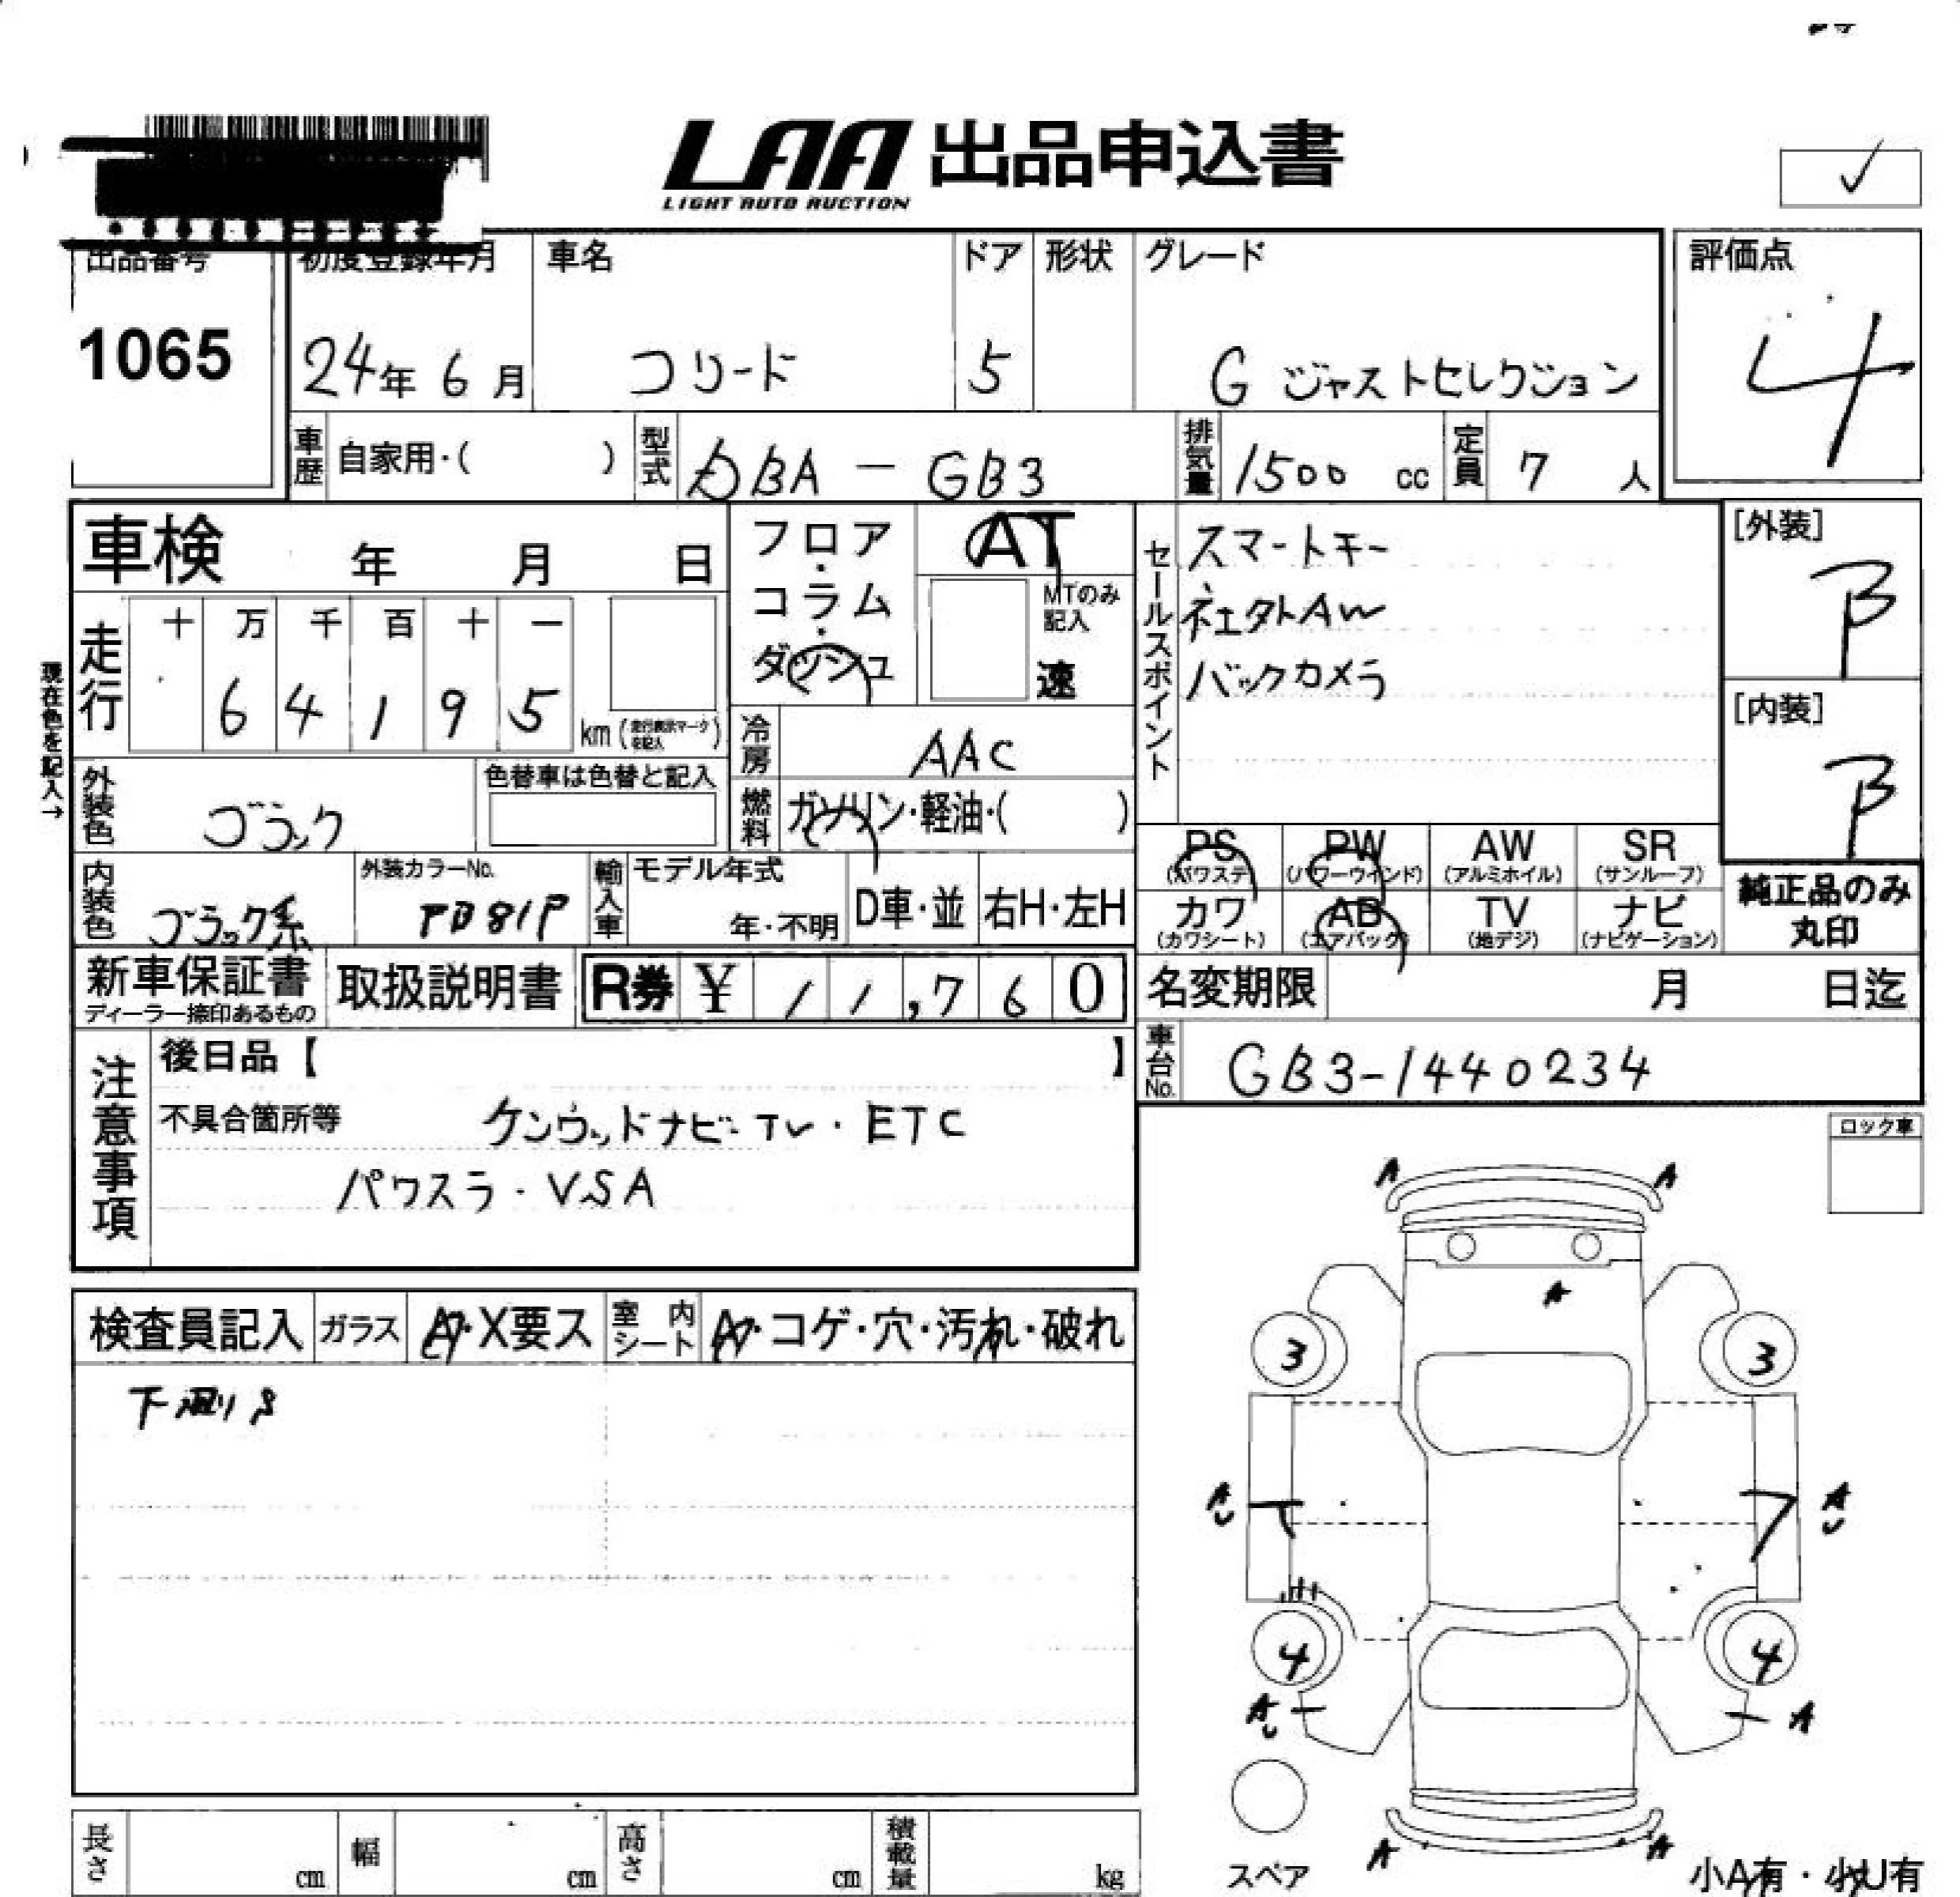 LAA 出品申込書
LIGHT AUTO AUCTION
出品番号 初度登録年月 車名 ドア 形状 グレード 評価点
1065 24年 6月 フリード 5 G ジャストセレクション 4
車歴 自家用・( ) 型式 DBA-GB3 排気量 1500 cc 定員 7 人
車検 年 月 日
フロア・コラム・ダッシュ
AT
MTのみ記入
速
セールスポイント
スマートキー
社外AW
バックカメラ
[外装]
B
[内装]
B
現在色を記入→
走行 十 万 千 百 十 一
6 4 1 9 5 km (走行表示マークを記入)
冷房 AAC
外装色 ブラック 色替車は色替と記入
燃料 ガソリン・軽油・( )
PS (パワステ) PW (パワーウインド) AW (アルミホイル) SR (サンルーフ)
カワ (カワシート) AB (エアバック) TV (地デジ) ナビ (ナビゲーション)
純正品のみ丸印
内装色 ブラック系 外装カラーNo. 輸入車 モデル年式 年・不明 D車・並 右H・左H
新車保証書 ディーラー捺印あるもの 取扱説明書 R券 ¥ 11,760
名変期限 月 日迄
車台No. GB3-1440234
注意事項
後日品【 】
不具合箇所等 ケンウッドナビ・TV・ETC
パワスラ・VSA
ロック車
検査員記入 ガラス A・X要ス 室内シート A・コゲ・穴・汚れ・破れ
A A
A
3 3
A U A U
4 4
A U A
A A
スペア
小A有・小U有
長さ cm 幅 cm 高さ cm 積載量 kg